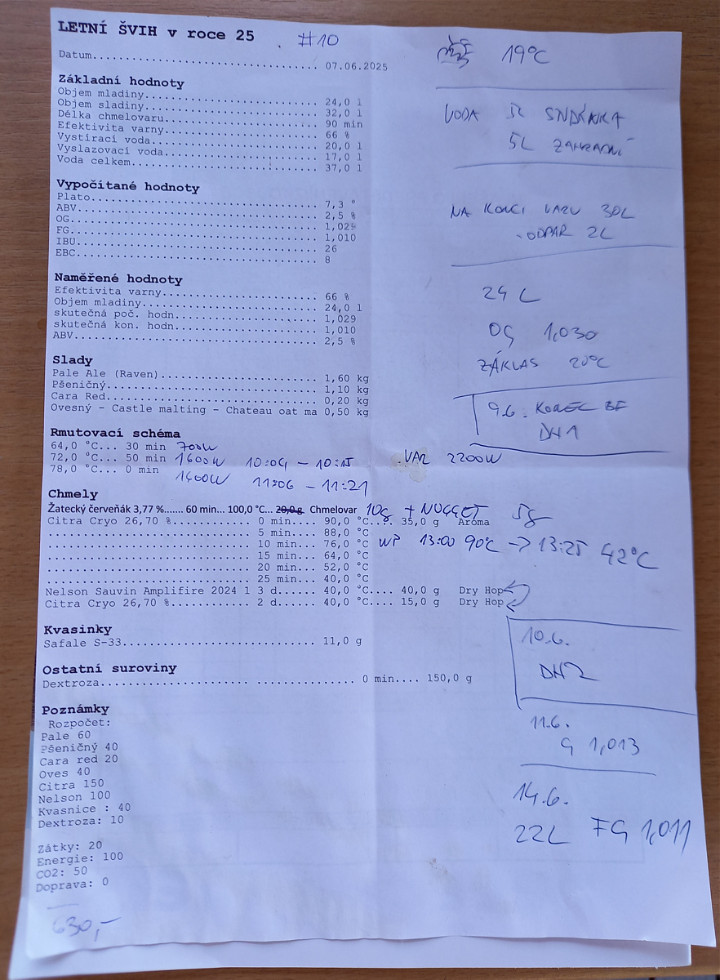 LETNÍ ŠVIH v roce 25 #10
Datum................................. 07.06.2025
Základní hodnoty
Objem mladiny................................. 24,0 l
Objem sladiny................................. 32,0 l
Délka chmelovaru................................. 90 min
Efektivita varny................................. 66 %
Vystírací voda................................. 20,0 l
Vyslazovací voda................................. 17,0 l
Voda celkem................................. 37,0 l
Vypočítané hodnoty
Plato................................. 7,3 °
ABV................................. 2,5 %
OG................................. 1,029
FG................................. 1,010
IBU................................. 26
EBC................................. 8
Naměřené hodnoty
Efektivita varny................................. 66 %
Objem mladiny................................. 24,0 l
skutečná poč. hodn................................. 1,029
skutečná kon. hodn................................. 1,010
ABV................................. 2,5 %
Slady
Pale Ale (Raven)................................. 1,60 kg
Pšeničný................................. 1,10 kg
Cara Red................................. 0,20 kg
Ovesný - Castle malting - Chateau oat ma 0,50 kg
Rmutovací schéma
64,0 °C... 30 min 700W
72,0 °C... 50 min 1600W 10:04 - 10:15
78,0 °C... 0 min 1400W 11:06 - 11:21
VAR 2200W
Chmely
Žatecký červeňák 3,77 %....... 60 min... 100,0 °C... 20,0 g Chmelovar 10g + NUGGET 5g
Citra Cryo 26,70 %............ 0 min.... 90,0 °C... 35,0 g Aroma
................................. 5 min... 88,0 °C
................................. 10 min... 76,0 °C WP 13:00 90°C -> 13:25 42°C
................................. 15 min... 64,0 °C
................................. 20 min... 52,0 °C
................................. 25 min... 40,0 °C
Nelson Sauvin Amplifire 2024 1 3 d...... 40,0 °C.... 40,0 g Dry Hop
Citra Cryo 26,70 %............ 2 d...... 40,0 °C.... 15,0 g Dry Hop
Kvasinky
Safale S-33............................ 11,0 g
Ostatní suroviny
Dextroza................................. 0 min.... 150,0 g
Poznámky
Rozpočet:
Pale 60
Pšeničný 40
Cara red 20
Oves 40
Citra 150
Nelson 100
Kvasnice : 40
Dextroza: 10
Zátky: 20
Energie: 100
CO2: 50
Doprava: 0
630,-
19°C
VODA
5L ZAHRADNÍ
NA KONCI VARU 30L
- ODPAR 2L
24 L
OG 1,030
ZÁKLAS 20°C
9.6. KONEC BF
DH1
10.6.
DH2
11.6.
G 1,013
14.6.
22L FG 1,011